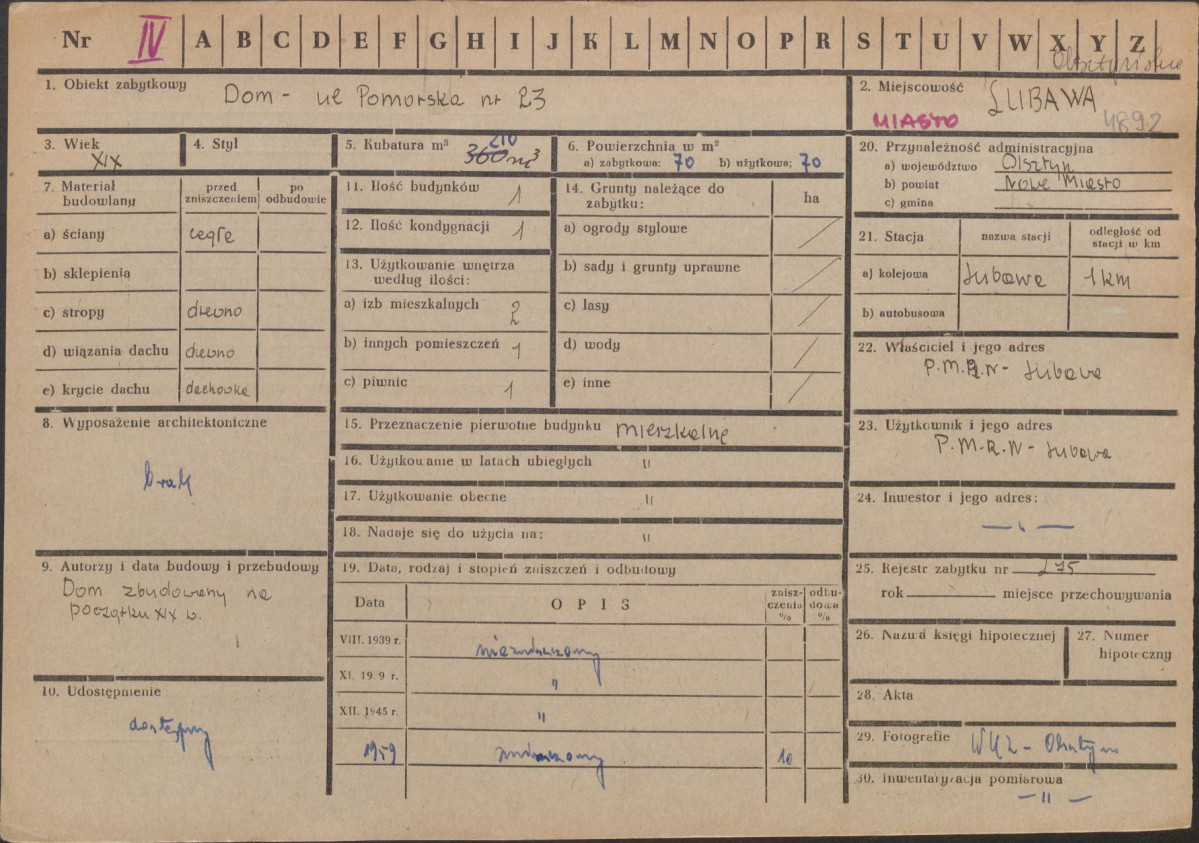 Nr IV A B C D E F G H I J K L M N O P R S T U V W X Y Z
1. Obiekt zabytkowy
Dom - ul Pomorska nr 23
2. Miejscowość
LUBAWA
MIASTO 4892
3. Wiek
XIX
4. Styl
5. Kubatura m³
210
360 m³
6. Powierzchnia w m²
a) zabytkowa: 70 b) użytkowa; 70
20. Przynależność administracyjna
a) województwo Olsztyn
b) powiat Nowe Miasto
c) gmina
7. Materiał budowlany
przed zniszczeniem
po odbudowie
a) ściany cegła
b) sklepienia
c) stropy drewno
d) wiązania dachu drewno
e) krycie dachu dachówka
8. Wyposażenie architektoniczne
brak
9. Autorzy i data budowy i przebudowy
Dom zbudowany na
początku XIX w.
10. Udostępnienie
dostępny
11. Ilość budynków 1
12. Ilość kondygnacji 1
13. Użytkowanie wnętrza
według ilości:
a) izb mieszkalnych 2
b) innych pomieszczeń 1
c) piwnic 1
14. Grunty należące do
zabytku:
ha
a) ogrody stylowe
b) sady i grunty uprawne
c) lasy
d) wody
e) inne
15. Przeznaczenie pierwotne budynku mieszkalne
16. Użytkowanie w latach ubiegłych "
17. Użytkowanie obecne "
18. Nadaje się do użycia na: "
19. Data, rodzaj i stopień zniszczeń i odbudowy
Data
OPIS
znisz-
czenia
%
odbu-
dowa
%
VIII. 1939 r. niezniszczony
XI. 19 9 r. "
XII. 1945 r. "
1959 zniszczony 10
21. Stacja
nazwa stacji
odległość od
stacji w km
a) kolejowa Lubawa 1 km
b) autobusowa
22. Właściciel i jego adres
P.M.R.N - Lubawa
23. Użytkownik i jego adres
P.M.R.N - Lubawa
24. Inwestor i jego adres:
— " —
25. Rejestr zabytku nr 275
rok miejsce przechowywania
26. Nazwa księgi hipotecznej
27. Numer
hipoteczny
28. Akta
29. Fotografie WKZ - Olsztyn
30. Inwentaryzacja pomiarowa
— " —